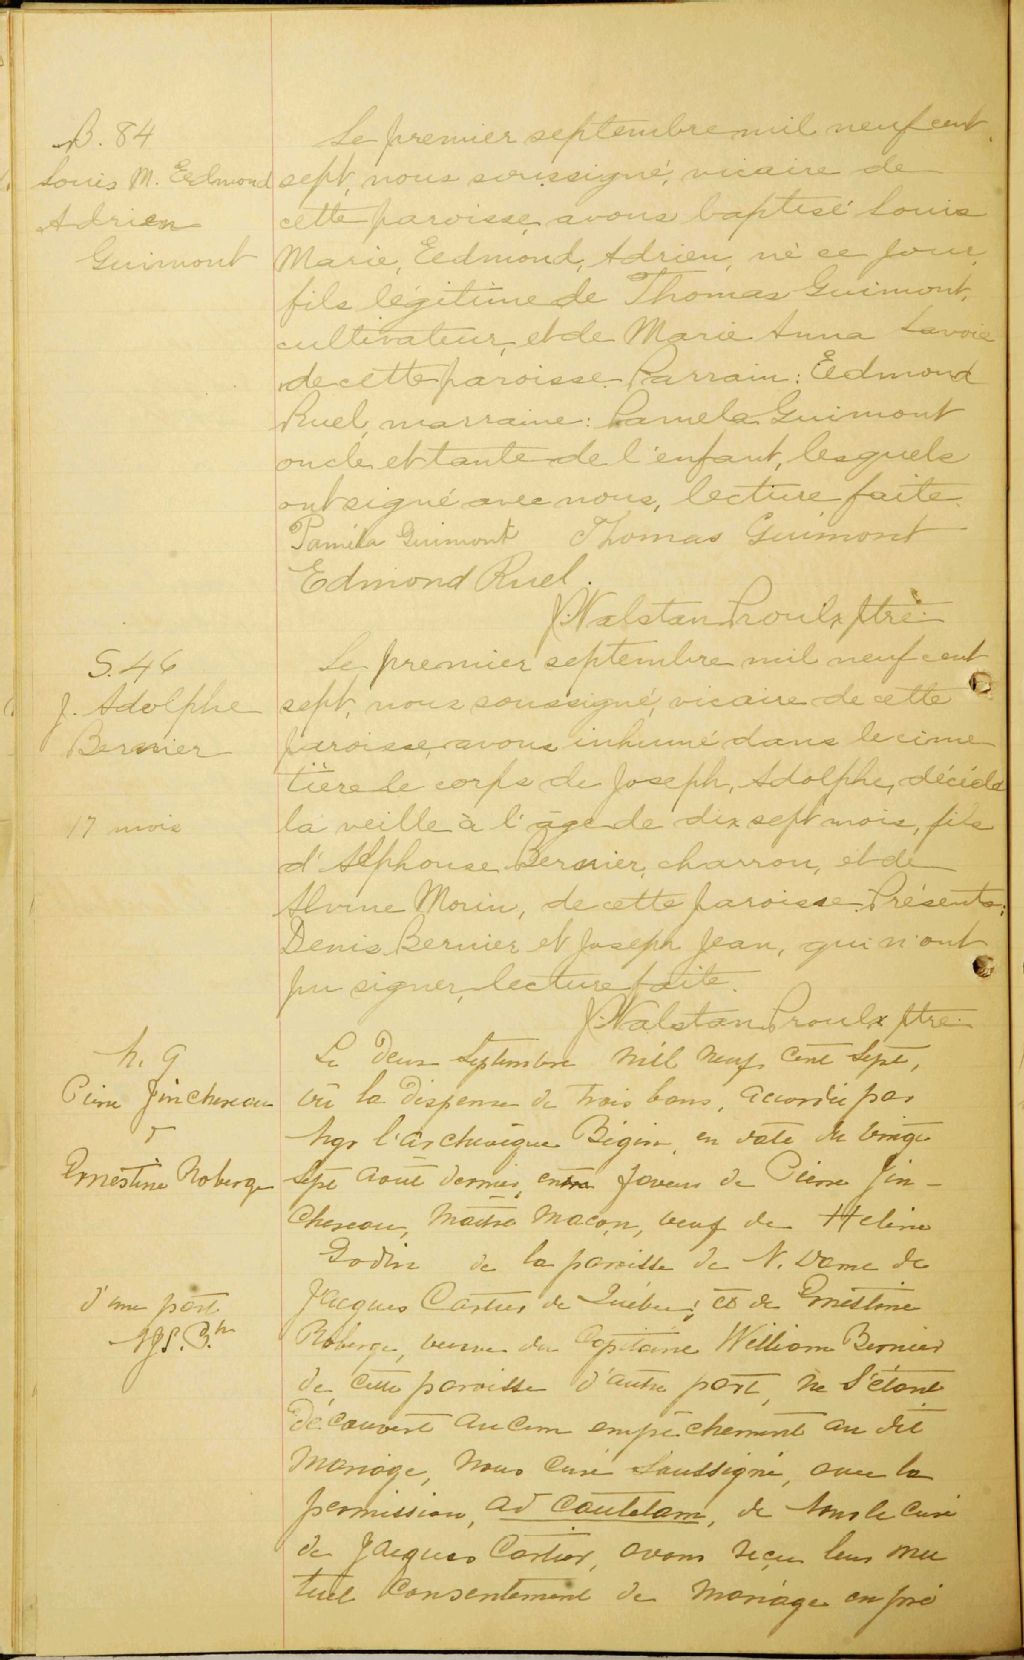 B. 84
Louis M. Eedmond
Adrien
Guimont
Le premier septembre mil neuf cent
sept, nous soussigné, vicaire de
cette paroisse avons baptisé Louis
Marie, Eedmond, Adrien, né ce jour,
fils légitime de Thomas Guimont,
cultivateur, et de Marie Anna Lavoie
de cette paroisse. Parrain: Eedmond
Ruel, marraine: Pamela Guimont
oncle et tante de l'enfant, lesquels
ont signé avec nous, lecture faite.
Paméla Guimont Thomas Guimont
Edmond Ruel.
J. Nalstan Proulx ptre.
S. 46
J. Adolphe
Bernier
17 mois
Le premier septembre mil neuf cent
sept, nous soussigné, vicaire de cette
paroisse, avons inhumé dans le cime
tière le corps de Joseph, Adolphe, décédé
la veille à l'âge de dix sept mois, fils
d'Alphonse Bernier, charron, et de
Alvine Morin, de cette paroisse. Présents:
Denis Bernier et Joseph Jean, qui n'ont
pu signer, lecture faite.
J. Nalstan Proulx ptre.
M. 9
Pierre Jinchereau
&
Ernestine Roberge
d'une part
Le deux Septembre mil neuf cent sept,
vû la dispense de trois bans, accordée par
Mgr l'archevêque Bégin, en date du vingt
sept août dernier, en faveur de Pierre Jin-
chereau, Maître Maçon, veuf de Heline
Godin de la paroisse de N. Dame de
Jacques Cartier de Québec; et de Ernestine
Roberge, veuve du Capitaine William Bernier
de cette paroisse d'autre part, ne s'étant
découvert aucun empêchement au dit
mariage, nous curé soussigné, avec la
permission, ad cautelam, de Mr le curé
de Jacques Cartier, avons reçu leur mu
tuel consentement de mariage en pré